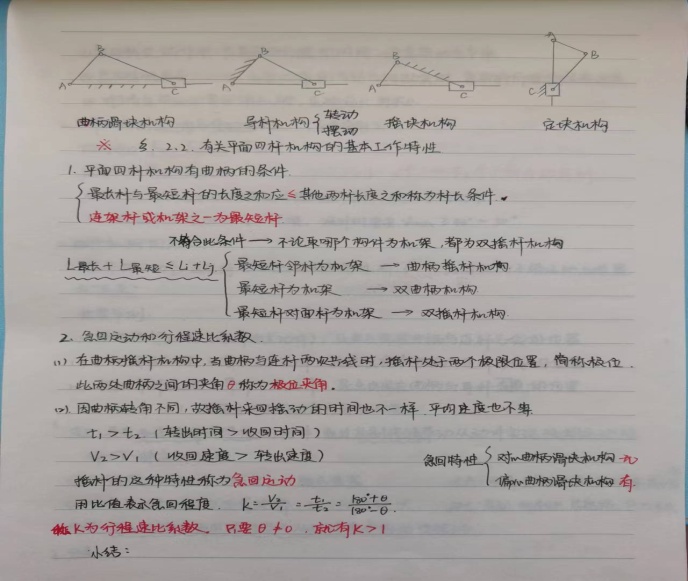 B B B A
A C A C A C B C
曲柄滑块机构 导杆机构{转动 摆动 摇块机构 定块机构
※ §. 2.2. 有关平面四杆机构的基本工作特性
1. 平面四杆机构有曲柄的条件.
最长杆与最短杆的长度之和应≤其他两杆长度之和称为杆长条件.
连架杆或机架之一为最短杆
不符合此条件→不论取哪个构件为机架,都为双摇杆机构
L最长+L最短≤Li+Lj
最短杆邻杆为机架→曲柄摇杆机构
最短杆为机架→双曲柄机构
最短杆对面杆为机架→双摇杆机构
2. 急回运动和行程速比系数.
(1) 在曲柄摇杆机构中,当曲柄与连杆两次共线时,摇杆处于两个极限位置,简称极位.
此两处曲柄之间的夹角θ称为极位夹角.
(2) 因曲柄转角不同,故摇杆来回摇动的时间也不一样 平均速度也不等
t₁>t₂ (转出时间>收回时间)
V₂>V₁ (收回速度>转出速度)
急回特性{对心曲柄滑块机构 无
偏心曲柄滑块机构 有
摇杆的这种特性称为急回运动
用比值表示急回程度. K=V₂/V₁=t₁/t₂=180°+θ/180°-θ.
称K为行程速比系数. 只要θ≠0,就有K>1
小结: